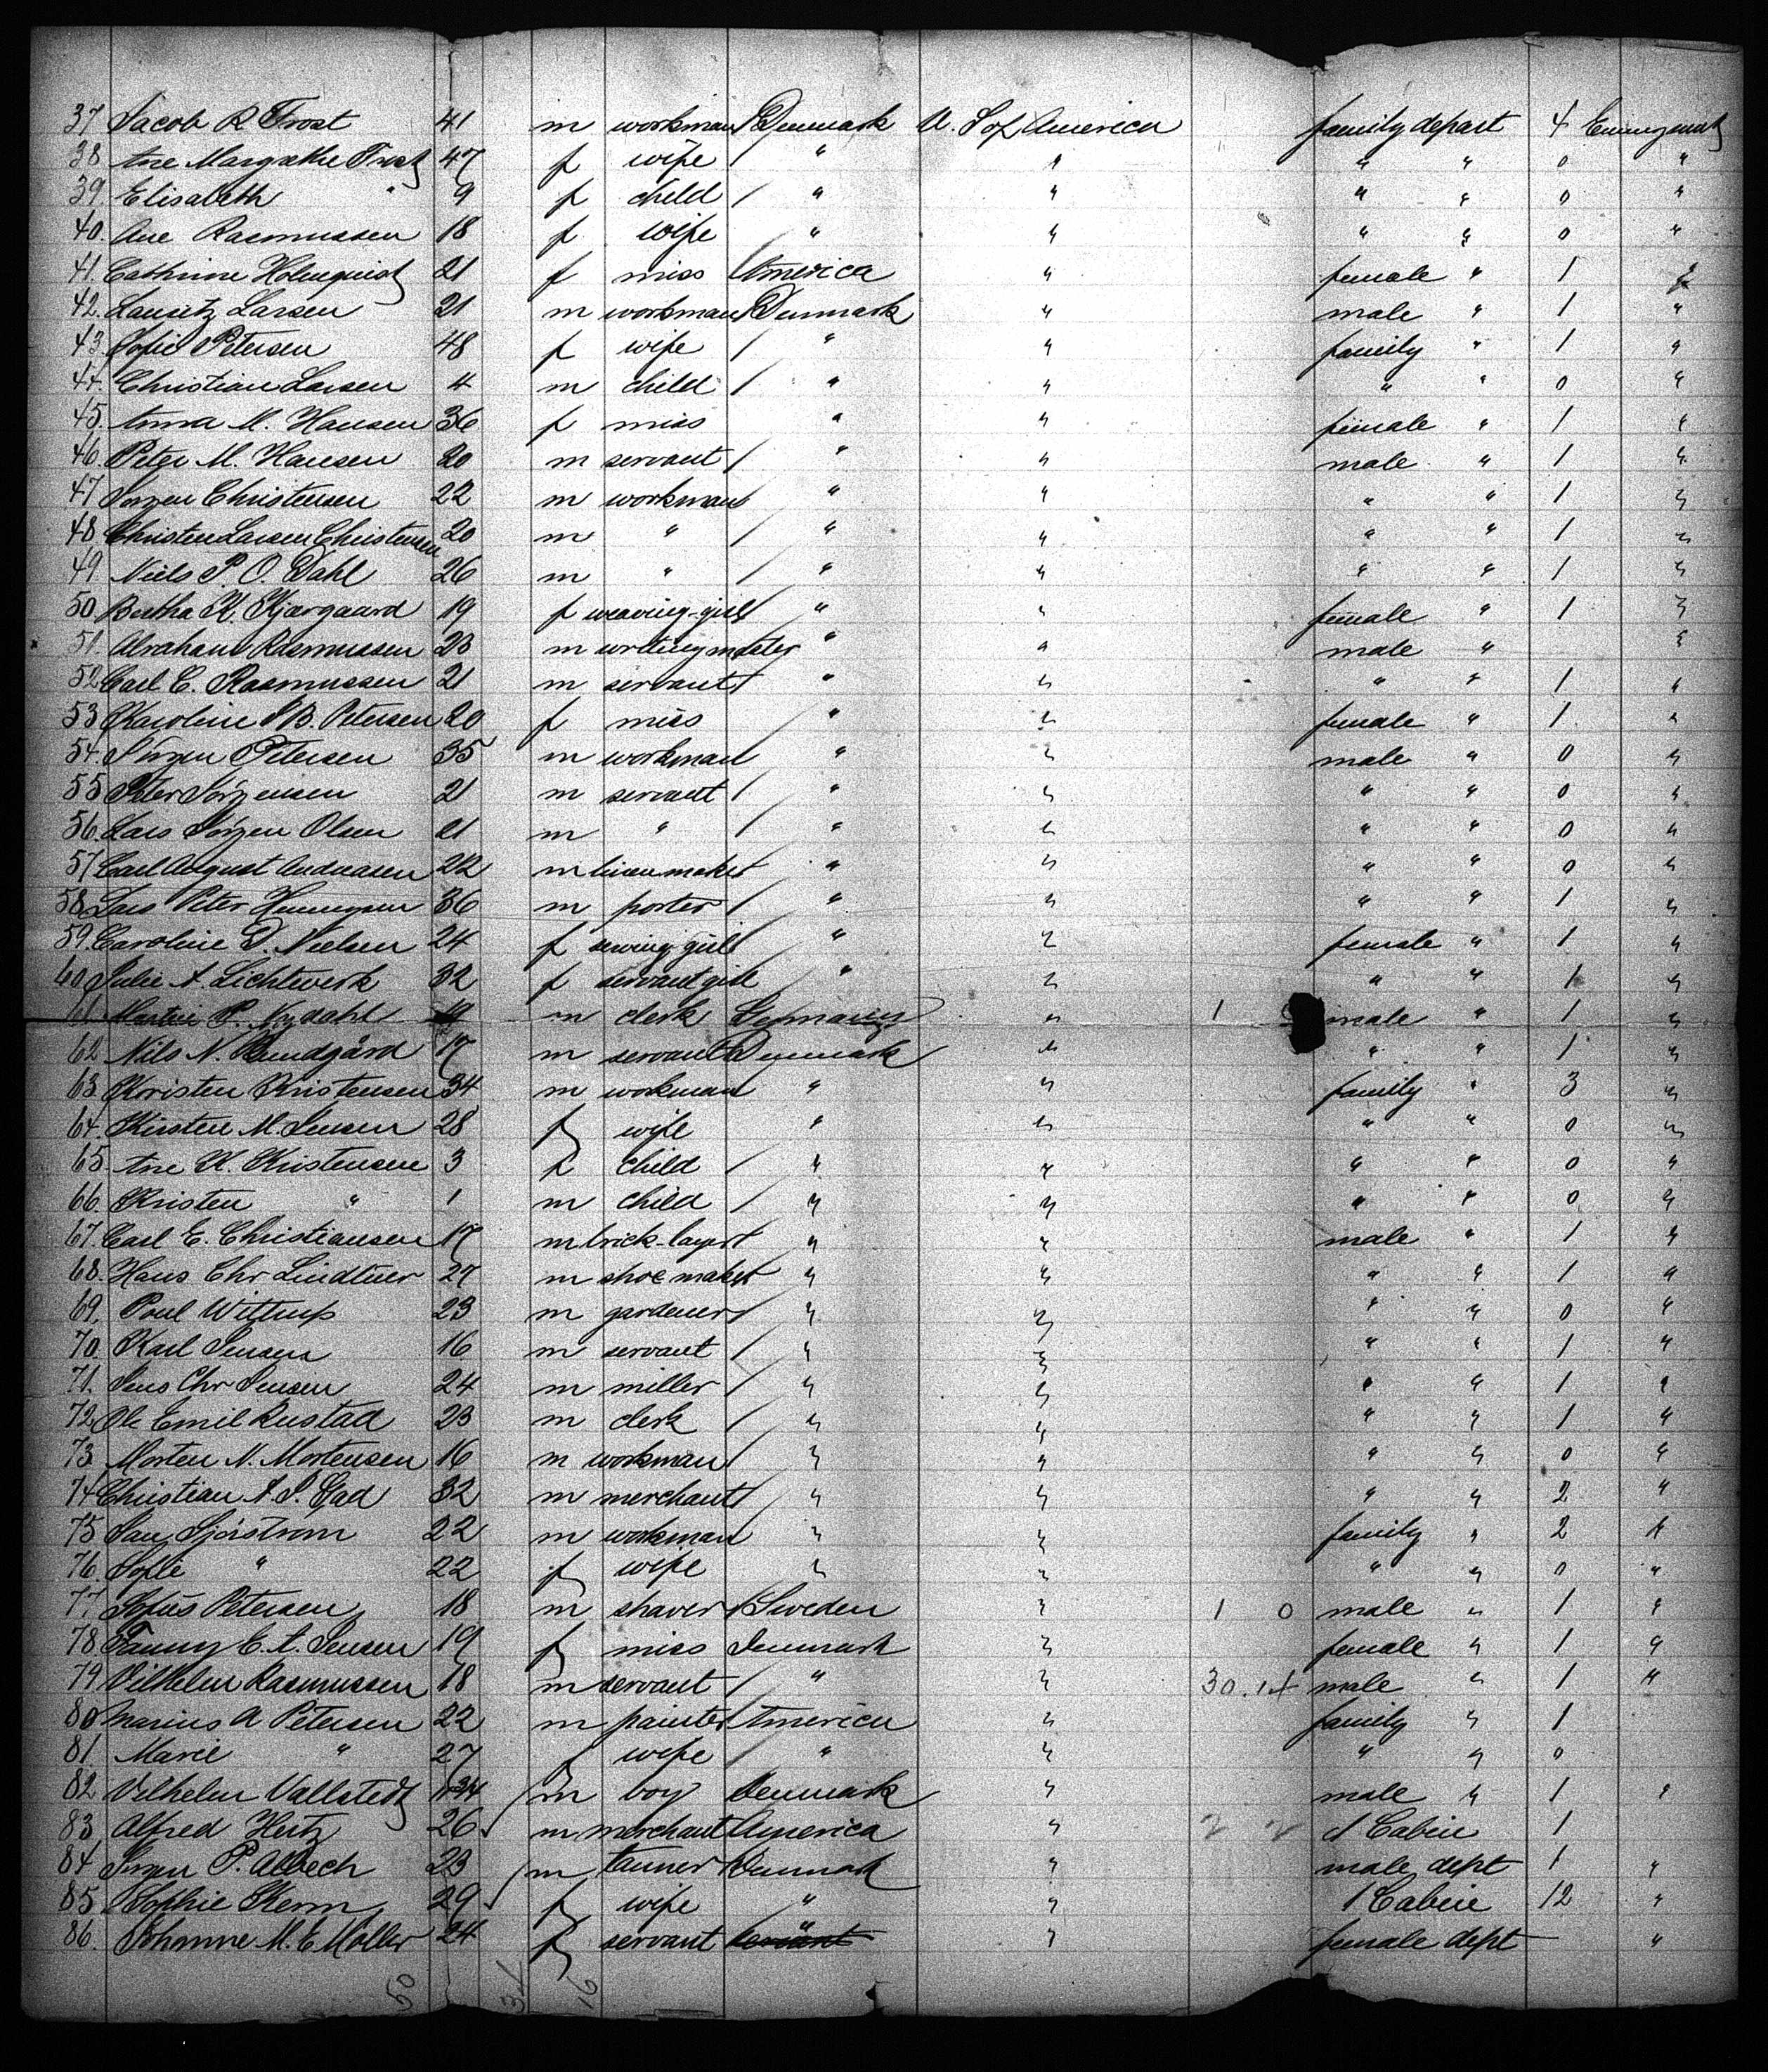 37 Jacob R Frost 41 m workman Denmark U. S of America family depart 4 Emmegrants
38 Ane Margrethe Frost 47 f wife / " " " " 0 "
39 Elisabeth " 9 f child / " " " " 0 "
40. Ane Rasmussen 18 f wife " " " " 0 "
41. Cathrine Holmquist 21 f miss America " female " 1
42. Lauritz Larsen 21 m workman Denmark " male " 1 "
43. Sofie Petersen 48 f wife / " " family " 1 "
44. Christian Larsen 4 m child / " " " " 0 "
45. Anna M. Hansen 36 f miss " " female " 1 "
46. Peter M. Hansen 20 m servant / " " male " 1 "
47 Jörgen Christensen 22 m workman " " " " 1 "
48 Christen Larsen Christensen 20 m " / " " " " 1 "
49 Niels P. O. Dahl 26 m " / " " " " 1 "
50. Bertha K. Kjærgaard 19 f weaving-girl " " female " 1 "
51. Abraham Rasmussen 23 m " " male " "
52 Carl C. Rasmussen 21 m servant / " " " " 1 "
53 Karoline S B. Petersen 20 f miss / " " female " 1 "
54. Jörgen Petersen 35 m workman " " male " 0 "
55 Peter Jörgensen 21 m servant / " " " " 0 "
56. Lars Jörgen Olsen 21 m " / " " " " 0 "
57 Carl August Andreasen 22 m maker " " " " 0 "
58 Lars Peter 36 m porter / " " " " 1 "
59. Caroline D. Nielsen 24 f sewing girl " " female " 1 "
60 Julie A. Lichtwerk 32 f servant girl " " " " 1 "
61 Martin P. Nydahl 19 m clerk " 1 male " 1 "
62 Nils N. Lundgård 17 m servant Denmark " " " 1 "
63. Kristen Kristensen 34 m workman " " family " 3 "
64. Kirsten M. Jensen 28 f wife " " " " 0 "
65. Ane K. Kristensen 3 f child / " " " " 0 "
66. Kristen " 1 m child / " " " " 0 "
67. Carl E. Christiansen 17 m brick-layer " " male " 1 "
68. Hans Chr Lindtner 27 m shoe maker " " " " 1 "
69. Poul Wittrup 23 m gardener / " " " " 0 "
70. Karl Jensen 16 m servant / " " " " 1 "
71. Jens Chr Jensen 24 m miller / " " " " 1 "
72 Ole Emil Rustad 23 m clerk / " " " " 1 "
73. Morten N. Mortensen 16 m workman / " " " " 0 "
74 Christian A. P. Gad 32 m merchant / " " " " 2 "
75 Jan Sjöström 22 m workman " " family " 2 "
76. Sofie " 22 f wife " " " " 0 "
77. Sofus Petersen 18 m shaver Sweden " 1 0 male " 1 "
78 Fanny C. A. Jensen 19 f miss Denmark " female " 1 "
79 Vilhelm Rasmussen 18 m servant / " " 30. 14 male " 1 "
80 Marius A Petersen 22 m painter America " family " 1
81 Marie " 27 f wife / " " " " 0
82 Vilhelm Vallstedt m boy Denmark " male " 1 "
83 Alfred Hertz 26 m merchant America " 2 2 1 Cabin 1
84 Jörgen P. Albech 23 m tanner Denmark " male dept 1 "
85 Sophie Kern 29 f wife " " 1 Cabin 12 "
86. Johanne M. E Möller 24 f servant " female dept "
50 34 16